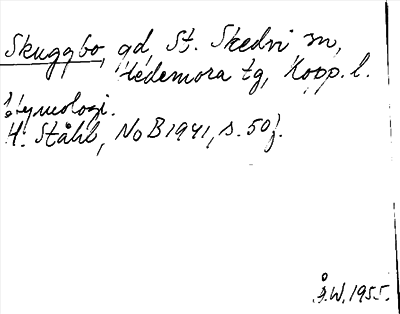 Skuggbo, gd, St. Skedvi sn,
Hedemora tg, Kopp. l.
Etymologi.
H. Ståhl, NoB 1941, s. 50f.
Å.W. 1955.